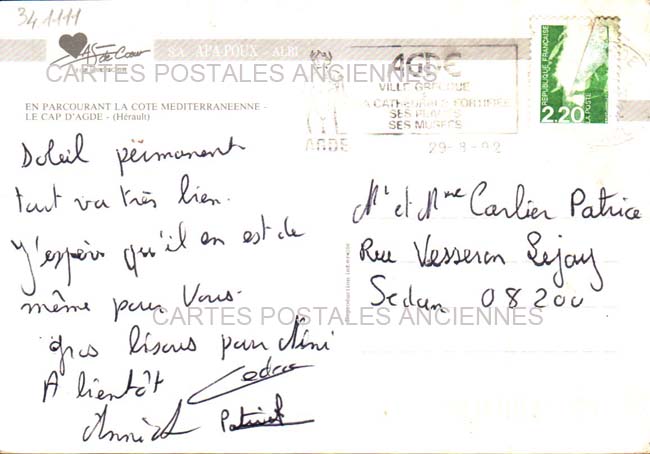 34.1111
As de Cœur
S.A. APA-POUX - ALBI
CARTES POSTALES ANCIENNES
EN PARCOURANT LA COTE MEDITERRANEENNE -
LE CAP D'AGDE - (Hérault)
AGDE
AGDE
VILLE GRECQUE
SA CATHEDRALE FORTIFIEE
SES PLAGES
SES MUSEES
29-8-92
REPUBLIQUE FRANÇAISE
LA POSTE
2,20
Soleil permanent
tout va très bien.
J'espère qu'il en est de
même pour Vous.
gros bisous pour Mimi
A bientôt
Cedric
Annick Patrick
Mr et Mme Carlier Patrice
Rue Vesseron Lejay
Sedan 08200
Reproduction interdite
CARTES POSTALES ANCIENNES